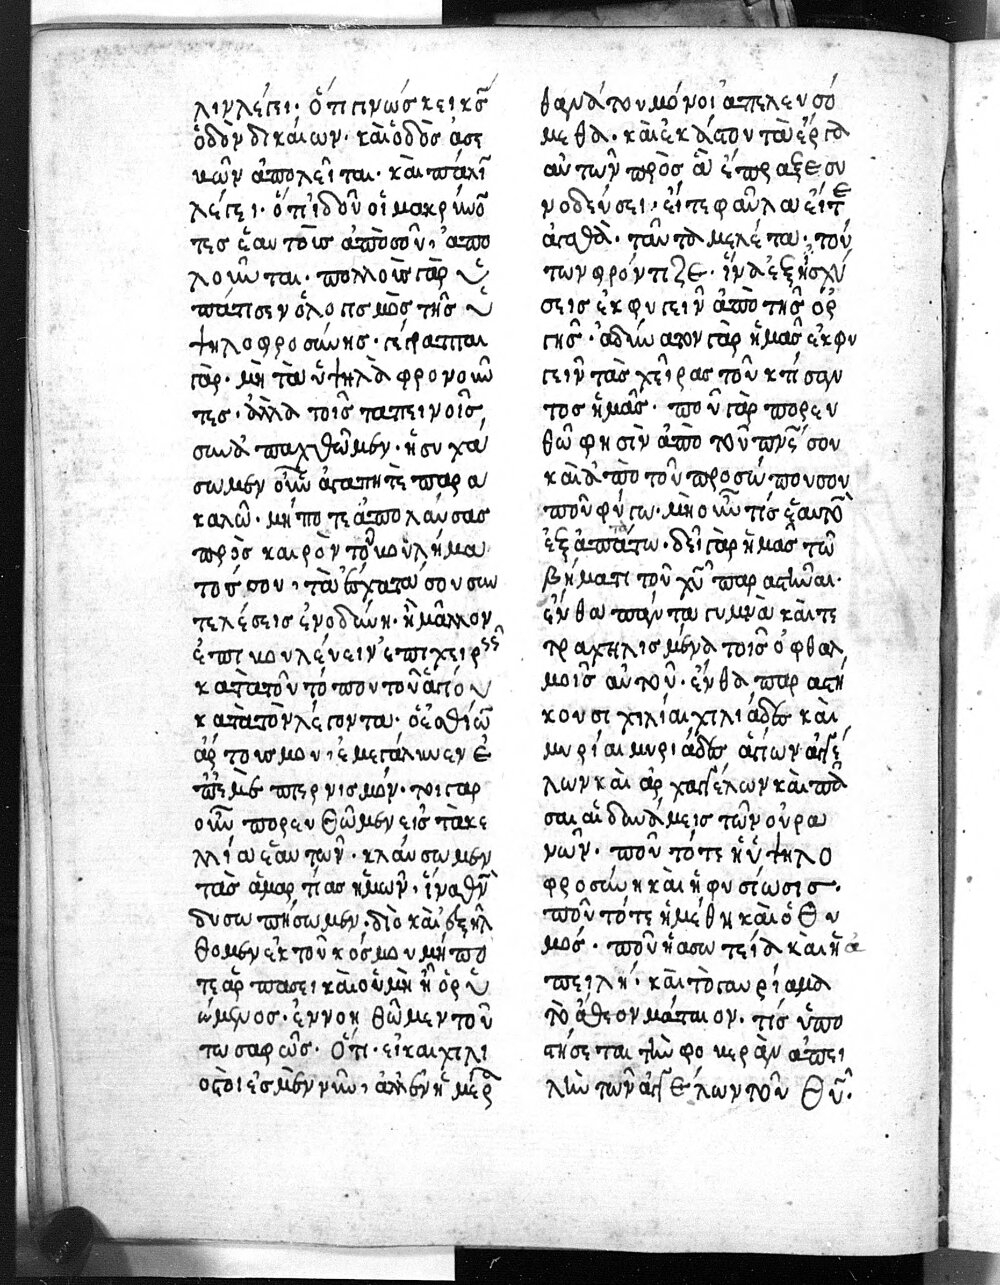 λιν λέγει· ὅτι γινώσκει κ̅ς̅
ὁδὸν δικαίων· καὶ ὁδὸς ἀσε
βῶν ἀπολεῖται· καὶ πάλι
λέγει· ὅτι ἰδοὺ οἱ μακρύνο
τες ἑαυτοὺς ἀπὸ σοῦ, ἀπο
λοῦνται· πολλοὺς γὰρ ὑ
πάτησεν ὁ λογισμὸς τῆς ὑ
ψηλοφροσύνης· γέγραπται
γὰρ· μὴ τὰ ὑψηλὰ φρονοῦν
τες· ἀλλὰ τοῖς ταπεινοῖς
συναπαχθῶμεν· ἡσυχά
σωμεν οὖν ἀγαπητὲ παρα
καλῶ· μήποτε ἀπολαύσας
πρὸς καιρὸν τοῦ βουλήμα
τός σου, τὰ ἔσχατά σου συν
τελέσεις ἐν ὀδύνῃ· ἢ μᾶλλον
ἐπιβουλεύειν ἐπιχειρ
κατὰ τοῦ τόπου τοῦ ἁγίου
κατὰ τὸν λέγοντα· ὁ ἐσθίων
ἄρτους μου, ἐμεγάλυνεν ἐ
π᾿ ἐμὲ πτερνισμόν· τοιγαρ
οῦν πορευθῶμεν εἰς τὰ κε
λλία ἑαυτῶν· κλαύσωμεν
τὰς ἁμαρτίας ἡμῶν, ἵνα θ̅ν̅
δυσωπήσωμεν· διὸ καὶ ἐξήλ
θομεν ἐκ τοῦ κόσμου μήπο
τε ἁρπάσει καὶ οὐ μὴ ᾖ ὁ ῥυ
ώμενος· ἐννοηθῶμεν τοῦ
το σαφῶς· Ὅτι· εἰ καὶ χίλι
οστοὶ ἐσμὲν νῦν, ἀλλ᾿ ἐν ἡμέρᾳ
θανάτου μόνοι ἀπελευσό
μεθα· καὶ ἑκάστου τὰ ἔργα
αὐτῶν πρὸς ἃ ἔπραξε συ
νοδεύσει· εἴτε φαῦλα εἴτε
ἀγαθά· ταῦτα μελέτα· τού
των φρόντιζε· ἵνα ἐξισχύ
σεις ἐκφυγεῖν ἀπὸ τῆς ὀρ
γῆς· ἀδύνατον γὰρ ἡμᾶς ἐκφυ
γεῖν τὰς χεῖρας τοῦ κτίσαν
τος ἡμᾶς· ποῦ γὰρ πορευ
θῶ φησὶν ἀπὸ τοῦ πν̅ς̅ σου
καὶ ἀπὸ τοῦ προσώπου σου
ποῦ φύγω· μὴ οὖν τίς ἑαυτὸν
ἐξαπατάτω· δεῖ γὰρ ἡμᾶς τῷ
βήματι τοῦ χ̅υ̅ παραστῆναι·
ἔνθα πάντα γυμνὰ καὶ τε
τραχηλισμένα τοῖς ὀφθαλ
μοῖς αὐτοῦ· ἔνθα παραστή
κουσι χίλιαι χιλιάδες καὶ
μυρίαι μυριάδες ἁγίων ἀγγέ
λων καὶ ἀρχαγγέλων καὶ πᾶ
σαι αἱ δυνάμεις τῶν οὐρα
νῶν· ποῦ τότε ἡ ὑψηλο
φροσύνη καὶ ἡ φυσίωσις·
ποῦ τότε ἡ μέθη καὶ ὁ θυ
μός· ποῦ ἡ ἀσωτεία καὶ ἡ ἀ
πειλή· καὶ τὸ γαυρίαμα
τὸ ἄθεον μάταιον· τίς ὑπο
στήσεται τὴν φοβερὰν ἀπει
λὴν τῶν ἀγγέλων τοῦ θ̅υ̅·